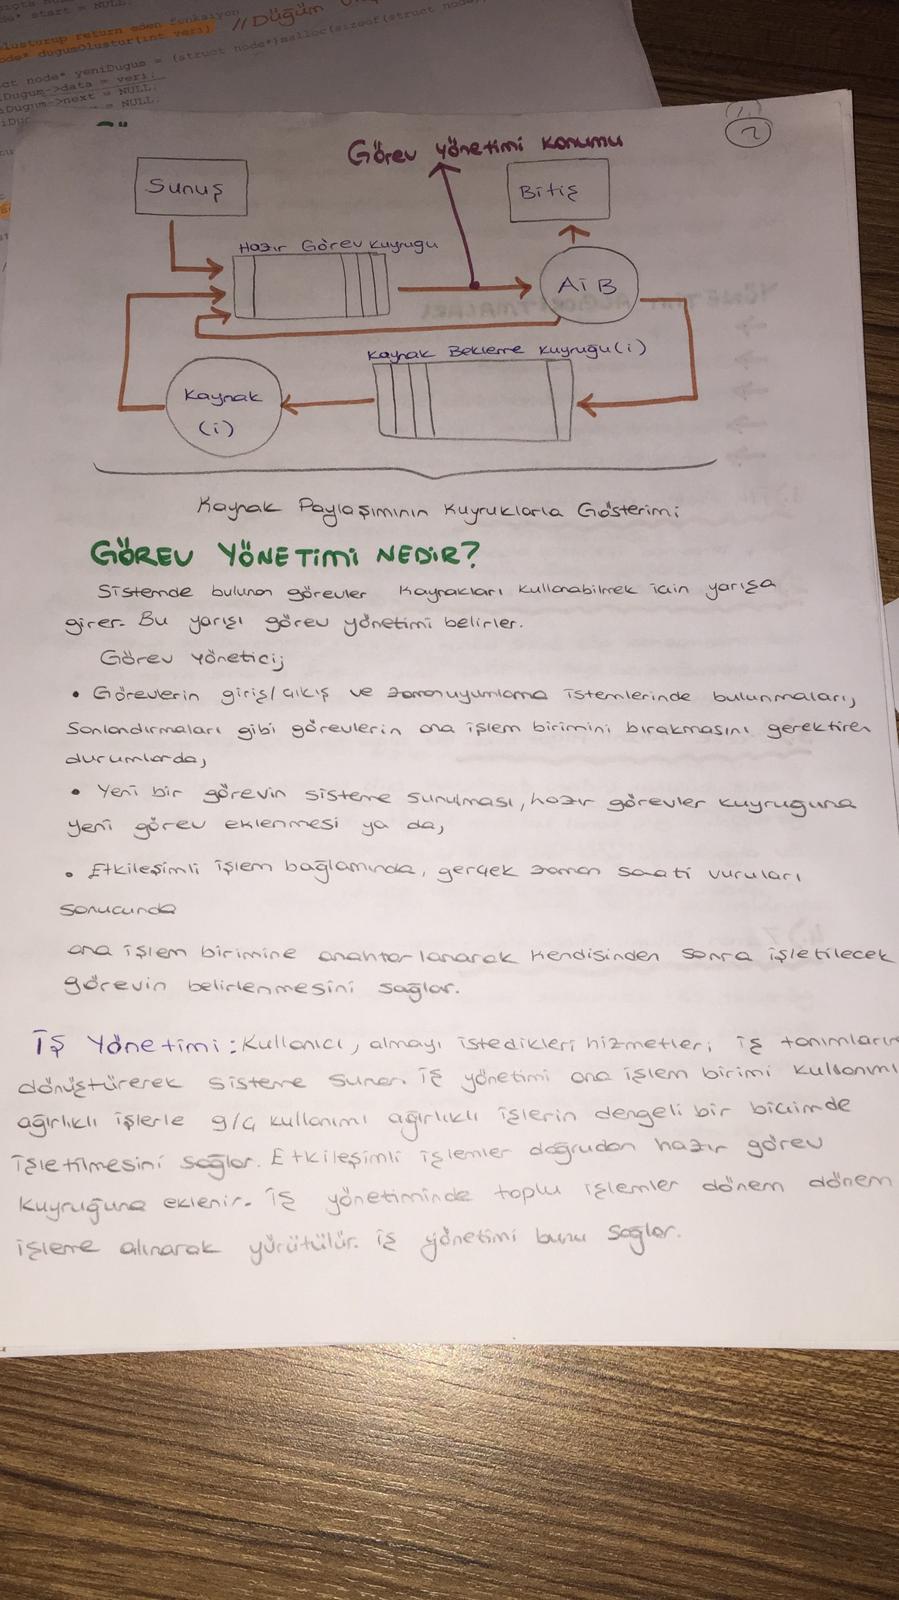 * start = NULL;
olusturup return eden fonksiyon
node* dugumOlustur(int veri) //Düğüm
struct node* yeniDugum = (struct node*)malloc(sizeof(struct node);
Dugum->data = veri;
Dugum->next = NULL;
= NULL;
2
Görev yönetimi konumu
Sunuş
Bitiş
Hazır Görev Kuyruğu
AİB
Kaynak Bekleme Kuyruğu(i)
Kaynak
(i)
Kaynak Paylaşımının Kuyruklarla Gösterimi
GÖREV YÖNETİMİ NEDİR?
Sistemde bulunan görevler kaynakları kullanabilmek için yarışa
girer. Bu yarışı görev yönetimi belirler.
Görev Yönetici;
• Görevlerin giriş/çıkış ve zamanuyumlama istemlerinde bulunmaları,
Sonlandırmaları gibi görevlerin ana işlem birimini bırakmasını gerektiren
durumlarda,
• Yeni bir görevin sisteme sunulması, hazır görevler kuyruğuna
yeni görev eklenmesi ya da,
• Etkileşimli işlem bağlamında, gerçek zaman saati vuruları
sonucunda
ana işlem birimine anahtarlanarak kendisinden sonra işletilecek
görevin belirlenmesini sağlar.
İş Yönetimi: Kullanıcı, almayı istedikleri hizmetleri iş tanımların
dönüştürerek sisteme sunar. İş yönetimi ana işlem birimi kullanımı
ağırlıklı işlerle g/ç kullanımı ağırlıklı işlerin dengeli bir biçimde
işletilmesini sağlar. Etkileşimli işlemler doğrudan hazır görev
kuyruğuna eklenir. İş yönetiminde toplu işlemler dönem dönem
işleme alınarak yürütülür. İş yönetimi bunu sağlar.